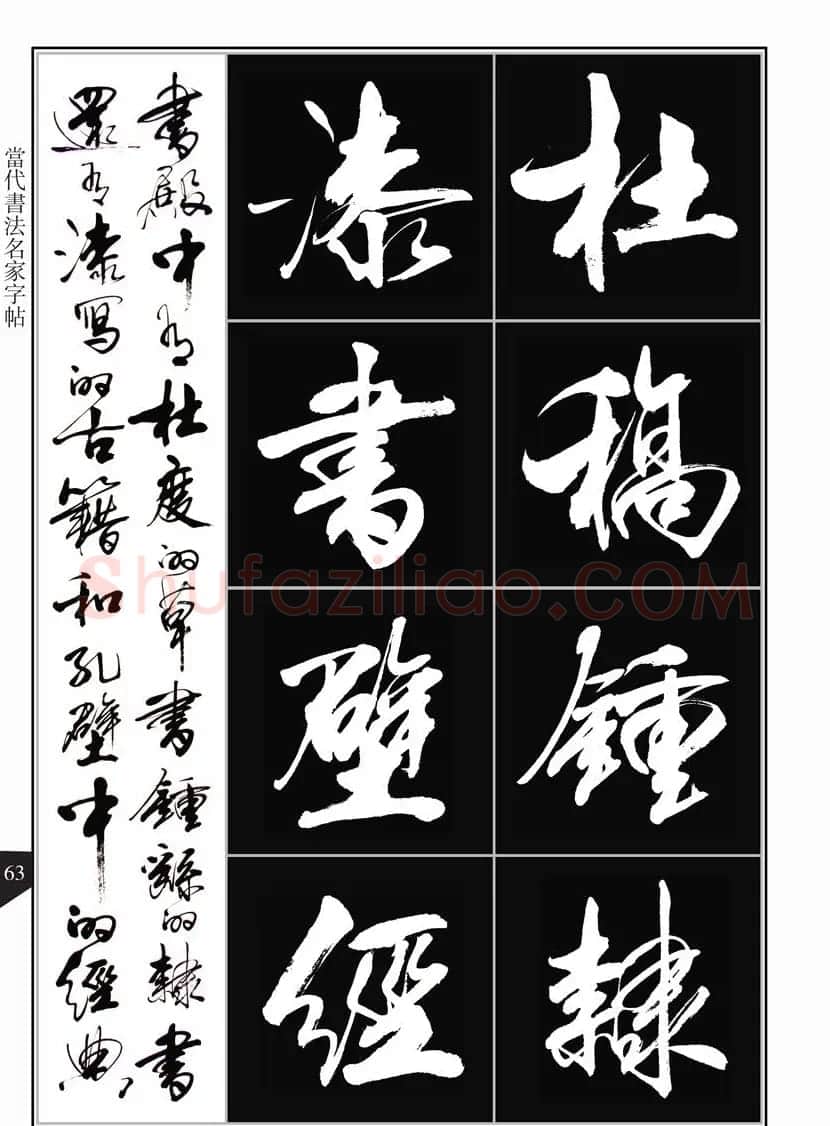 杜稿鍾隸
漆書壁經
書殿中有杜度的草書鍾繇的隸書
還有漆写的古籍和孔壁中的經典,
當代書法名家字帖
63
Shufaziliao.COM